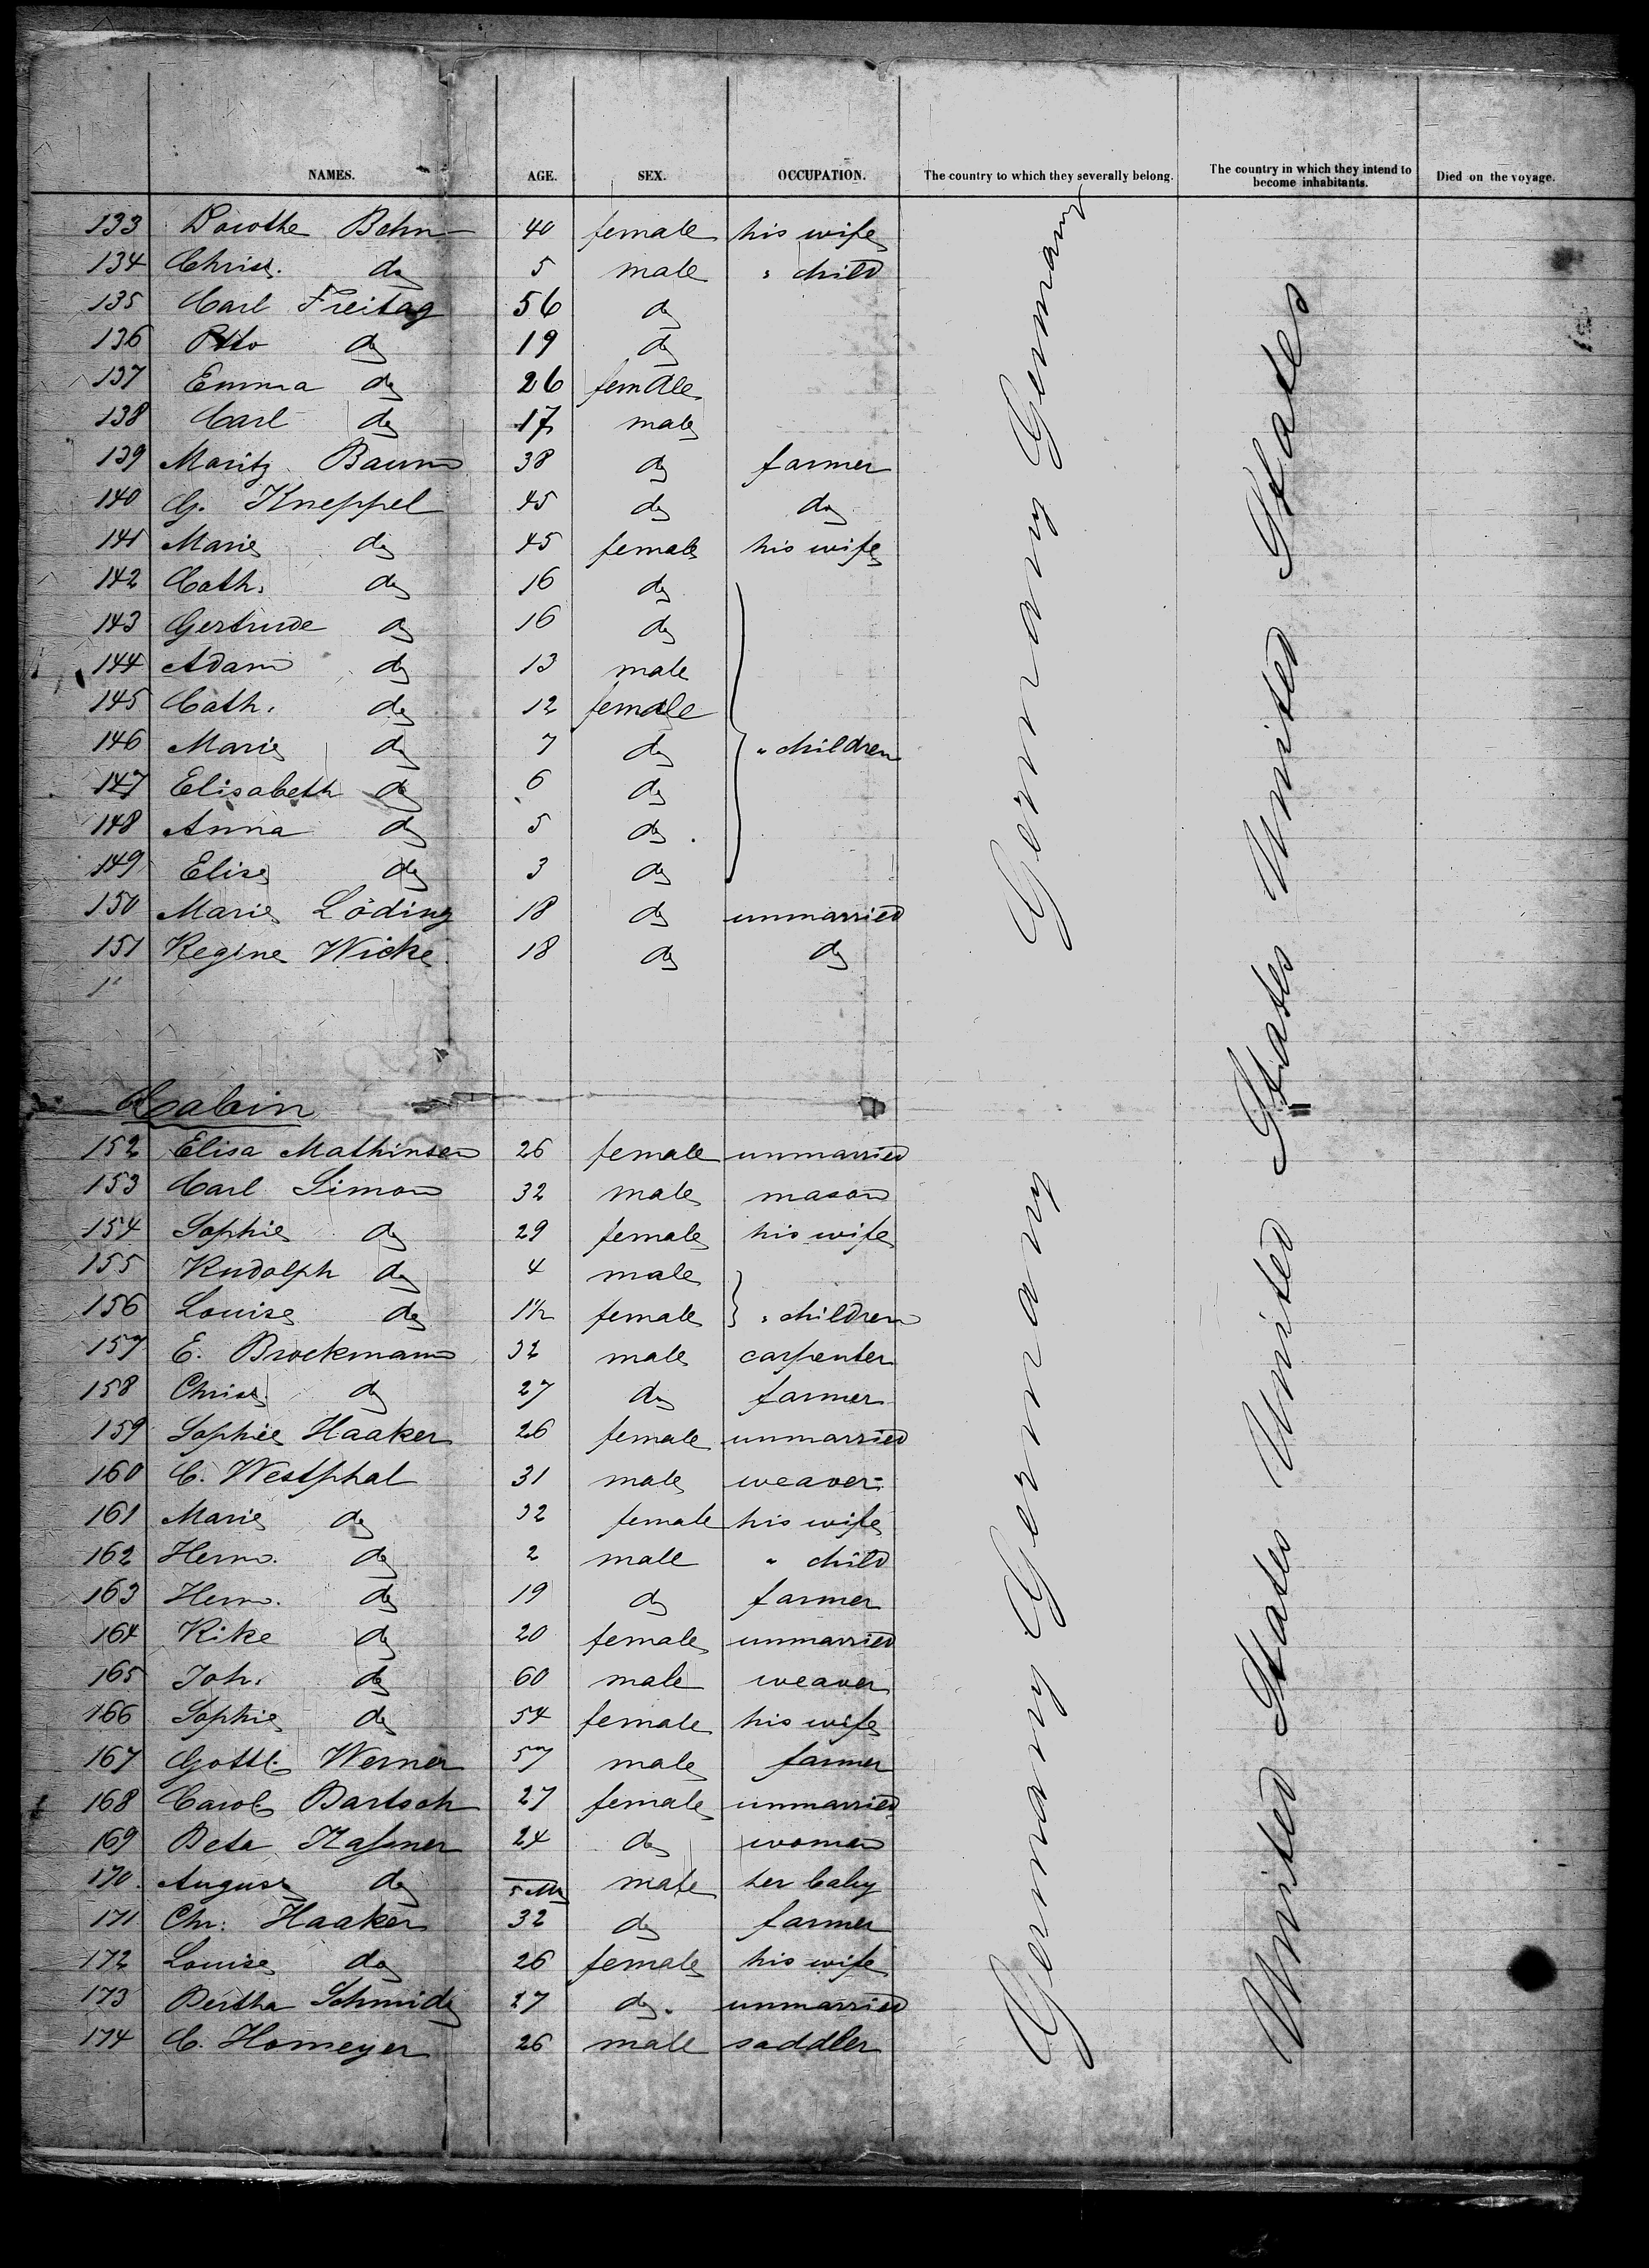 NAMES. AGE. SEX. OCCUPATION. The country to which they severally belong. The country in which they intend to become inhabitants. Died on the voyage.
133 Dorothe Behn 40 female his wife
134 Christ. do 5 male " child
135 Carl Freitag 56 do
136 Otto do 19 do
137 Emma do 26 female
138 Carl do 17 male
139 Moritz Baum 38 do farmer
140 G. Kneppel 45 do do
141 Marie do 45 female his wife
142 Cath. do 16 do
143 Gertrude do 16 do
144 Adam do 13 male
145 Cath. do 12 female
146 Marie do 7 do " children
147 Elisabeth do 6 do
148 Anna do 5 do
149 Elise do 3 do
150 Marie Löding 18 do unmarried
151 Regine Wicke 18 do do
Cabin
152 Elisa Mathinsen 26 female unmarried
153 Carl Simon 32 male mason
154 Sophie do 29 female his wife
155 Rudolph do 4 male
156 Louise do 1½ female " children
157 E. Brockmann 32 male carpenter
158 Christ. do 27 do farmer
159 Sophie Haaker 26 female unmarried
160 C. Westphal 31 male weaver
161 Marie do 32 female his wife
162 Herm. do 2 male " child
163 Herm. do 19 do farmer
164 Rike do 20 female unmarried
165 Joh. do 60 male weaver
166 Sophie do 54 female his wife
167 Gottl. Werner 57 male farmer
168 Carol. Bartsch 27 female unmarried
169 Beta 24 do woman
170 August do 5 male her baby
171 Chr. Haaker 32 do farmer
172 Louise do 26 female his wife
173 Bertha Schmidt 27 do unmarried
174 C. Homeyer 26 male saddler
Germany Germany Germany Germany
United States United States United States